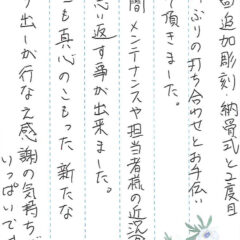 追加彫刻 納骨式と2度目
ぶりの打ち合わせとお手伝い
て頂きました。
間 メンテナンスや担当者様の近況
思い返す事が出来ました。
も真心のこもった 新たな
り出しが行なえ感謝の気持ちが
いっぱいで